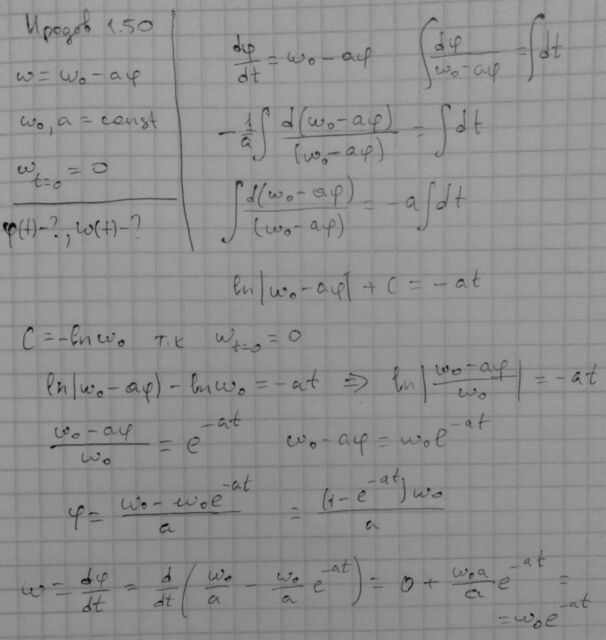 Иродов 1.50
ω = ω₀ - aφ
ω₀, a = const
ω_{t=0} = 0
φ(t)-?, ω(t)-?
dφ/dt = ω₀ - aφ ∫ dφ/(ω₀-aφ) = ∫dt
-1/a ∫ d(ω₀-aφ)/(ω₀-aφ) = ∫dt
∫ d(ω₀-aφ)/(ω₀-aφ) = -a∫dt
ln|ω₀-aφ| + C = -at
C = -lnω₀ т.к ω_{t=0} = 0
ln|ω₀-aφ) - lnω₀ = -at ⇒ ln|(ω₀-aφ)/ω₀| = -at
(ω₀-aφ)/ω₀ = e^{-at} ω₀-aφ = ω₀e^{-at}
φ = (ω₀ - ω₀e^{-at})/a = (1-e^{-at})ω₀/a
ω = dφ/dt = d/dt (ω₀/a - ω₀/a e^{-at}) = 0 + ω₀a/a e^{-at} =
= ω₀e^{-at}